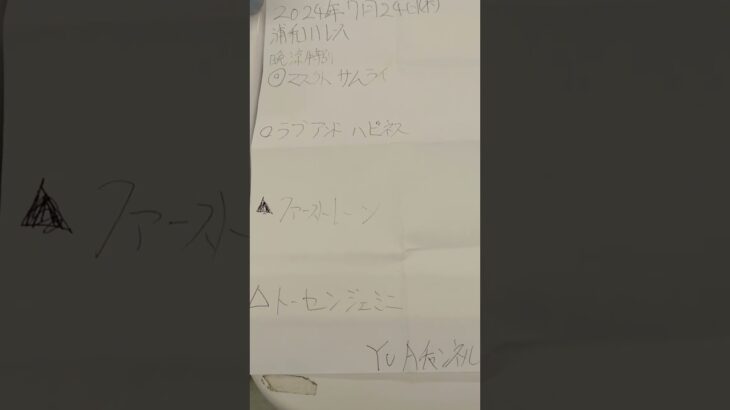 2024年7月24日(水)
浦和11レース
晩涼特別
◎マスクト サムライ
○ラブアンド ハピネス
▲ファーストトーン
△トーセンジェミニ
YUAチャンネル